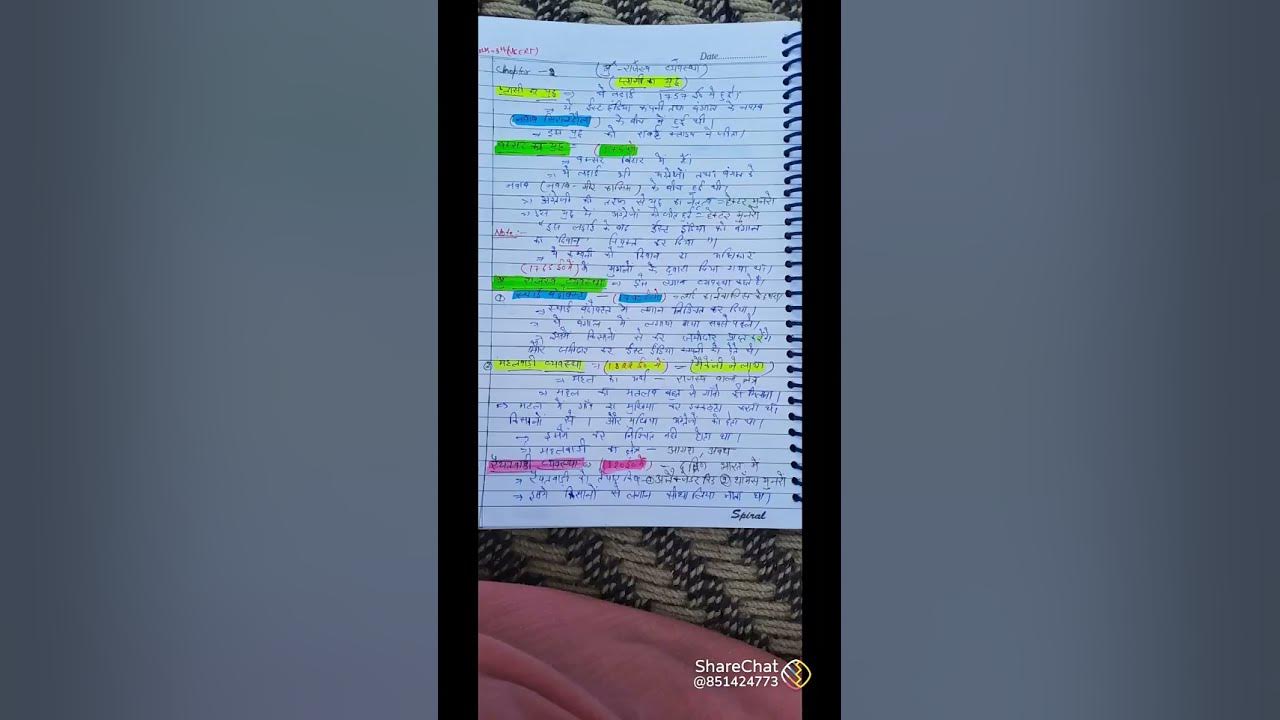 Date
Chapter - 2 (भू-राजस्व व्यवस्था)
(प्लासी का युद्ध)
प्लासी का युद्ध => ये लड़ाई 1757 ई० में हुई।
ये ईस्ट इंडिया कंपनी तथा बंगाल के नवाब
के बीच में हुई थी।
→ इस युद्ध को रॉबर्ट क्लाइव ने जीता।
बक्सर का युद्ध =
→ बक्सर बिहार में है।
→ ये लड़ाई भी अंग्रेजो तथा बंगाल के
नवाब (नवाब - मीर कासिम) के बीच हुई थी।
→ अंग्रेजों की तरफ से युद्ध का नेतृत्व = हेक्टर मुनरो
→ इस युद्ध में अंग्रेजो की जीत हुई = हेक्टर मुनरो
Note :- "इस लड़ाई के बाद ईस्ट इंडिया को बंगाल
का "दिवान" नियुक्त कर दिया"।
→ ये कम्पनी को दिवान का अधिकार
(1765 ई० में) मुगलो के द्वारा दिया गया था।
राजस्व व्यवस्था => इसे लगान व्यवस्था कहते है।
① स्थाई बंदोबस्त -
→ स्थाई बंदोबस्त में लगान निश्चित कर दिया।
→ ये बंगाल में लगाया गया सबसे पहले।
→ इसमें किसानो से कर जमीदार
और जमीदार कर ईस्ट इंडिया कम्पनी को देते थे।
② महलवाडी व्यवस्था → (1822 ई० में) =
→ महल का अर्थ - राजस्व
→ महल का मतलब बहुत से गांवो
=> महल में गाँव का मुखिया कर इक्कठा करता था
किसानो से। और मुखिया अंग्रेजो को देता था।
→ इसमें कर निश्चित नहीं होता था।
→ महलवाडी का क्षेत्र - आगरा, अवध
रैयतवाडी व्यवस्था => - दक्षिण भारत में
→ रैयतवाडी को तैयार किया - ① अलेक्जेंडर रीड ② थॉमस मुनरो
→ इसमें किसानों से लगान सीधा लिया जाता था।
Spiral
ShareChat
@851424773